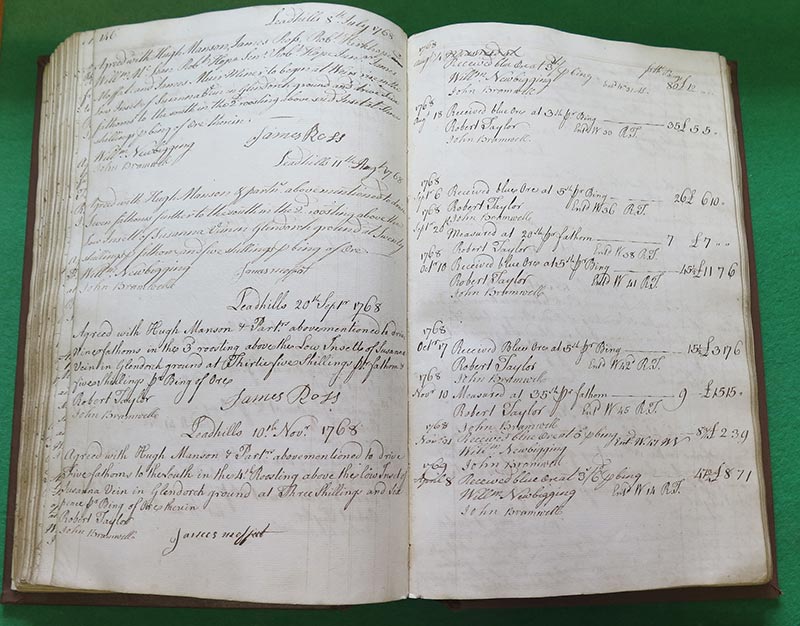 146
Leadhills 8th July 1768
Agreed with Hugh Manson, James Ross, Robt
Willm Robt Hope Senr Robt Hope Junr James
Moffat and James Muir Miner to begin at
Low Insett of Susanna Vein in Glendorch ground and
fathoms to the south in the 3d roosting
shillings p bing of Ore therin
Willm Newbigging
John Bramwell
James Ross
Leadhills 11th Augt 1768
Agreed with Hugh Manson & partrs above mentioned to drive
Seven fathoms further to the south in the 3d roosting above the
Low Insett of Susanna Vein in Glendorch ground at Twenty
shillings p fathom and five shillings p bing of Ore
Willm Newbigging
John Bramwell
James moffat
Leadhills 20th Septr 1768
Agreed with Hugh Manson & Partrs abovementioned to drive
Nine fathoms in the 3 roosting above the Low Insett of Susanna
Vein in Glendorch ground at Thirty five Shillings pr fathom &
five shillings pr Bing of Ore
Robert Taylor
John Bramwell
James Ross
Leadhills 10th Novr 1768
Agreed with Hugh Manson & Partrs abovementioned to drive
Five fathoms to the south in the 4th Roosting above the Low Insett of
Susanna Vein in Glendorch ground at Three Shillings and Six
pence pr Bing of Ore therin
Robert Taylor
John Bramwell
James moffat
1768
Augt 4 Received blue Ore at 5th p bing
Willm Newbigging
John Bramwell
1768
Augt 18 Received blue Ore at 3th pr Bing 35 £ 5 5
Robert Taylor Entd W 30 R.T.
John Bramwell
1768
Septr 6 Received blue Ore at 5th pr Bing 26 £ 6 10
Robert Taylor Entd W 36 R.T.
1768 John Bramwell
Septr 26 Measured at 20th pr fathom 7 £ 7
Robert Taylor Entd W 38 R.T.
1768
Octr 10 Received blue Ore at 5th pr Bing 45½ £ 11 7 6
Robert Taylor Entd W 41 R.T.
John Bramwell
1768
Octr 17 Received Blue Ore at 5th pr Bing 15½ £ 3 17 6
Robert Taylor Entd W 42 R.T.
1768 John Bramwell
Novr 10 Measured at 35th pr fathom 9 £ 15 15
Robert Taylor Entd W 45 R.T.
1768 John Bramwell
Received blue Ore at 5 p bing £ 2 3 9
Willm Newbigging
1769 John Bramwell
April 8 Received blue Ore at 3/6 p bing £ 8 7 1
Willm Newbigging Entd W 14 R.T.
John Bramwell